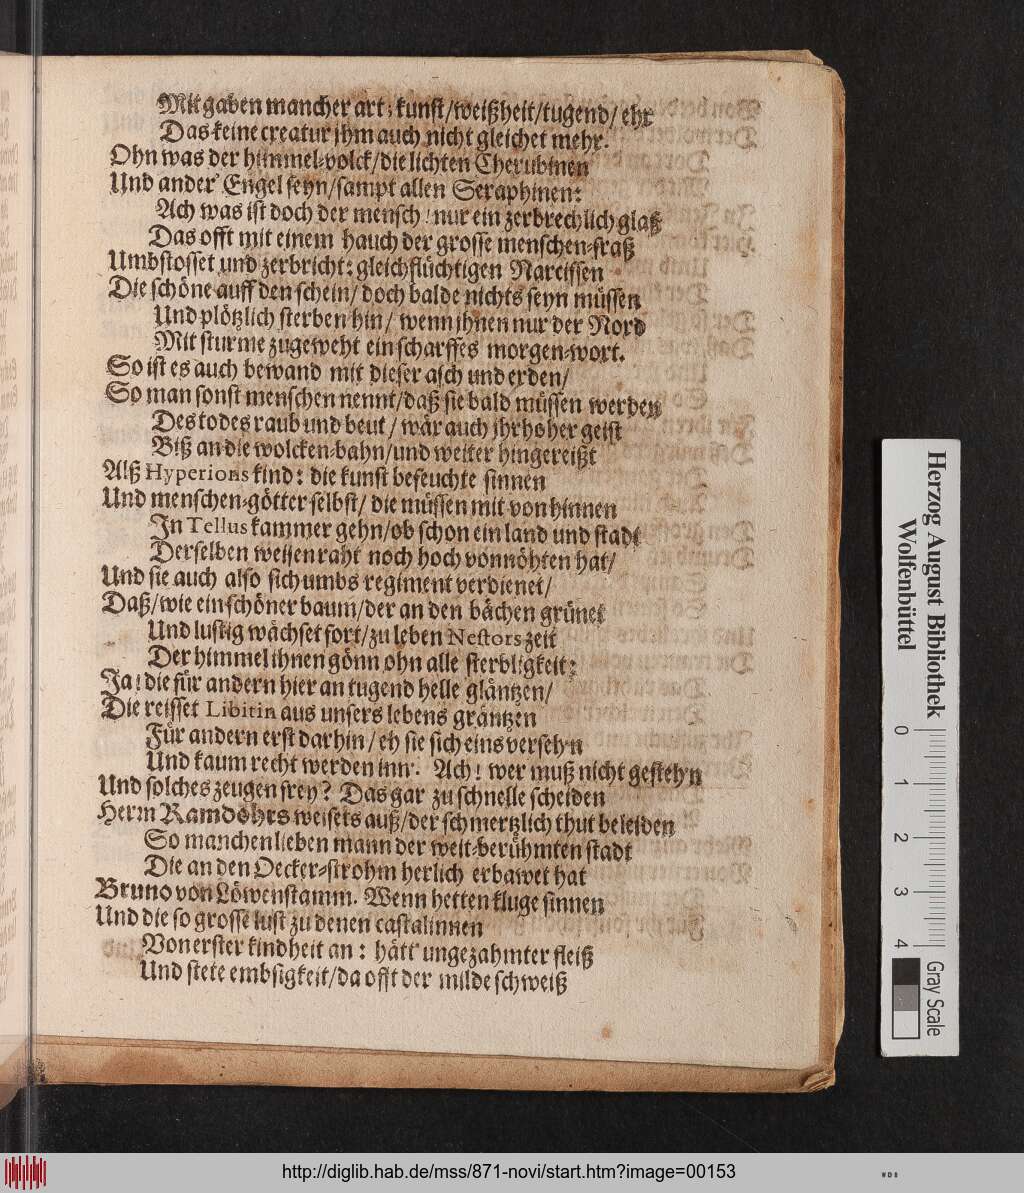 Mit gaben mancher art; kunst/weißheit/tugend/ ehr
Das keine creatur jhm auch nicht gleichet mehr.
Ohn was der himmel-volck/die lichten Cherubinen
Und ander' Engel seyn/sampt allen Seraphinen:
Ach was ist doch der mensch! nur ein zerbrechlich glaß
Das offt mit einem hauch der grosse menschen-fraß
Umbstosset und zerbricht: gleichflüchtigen Narcissen
Die schöne auff den schein/ doch balde nichts seyn müssen
Und plötzlich sterben hin/ wenn jhnen nur der Nord
Mit sturme zugeweht ein scharffes morgen-wort.
So ist es auch bewand mit dieser asch und erden/
So man sonst menschen nennt/daß sie bald müssen werden
Des todes raub und beut/ wär auch jhr hoher geist
Biß an die wolcken-bahn/und weiter hingereißt
Alß Hyperions kind: die kunst befeuchte sinnen
Und menschen-götter selbst/ die müssen mit von hinnen
In Tellus kammer gehn/ob schon ein land und stadt
Derselben weisen raht noch hoch vonnöhten hat/
Und sie auch also sich umbs regiment verdienet/
Daß/wie ein schöner baum/der an den bächen grünet
Und lustig wächset fort/zu leben Nestors zeit
Der himmel ihnen gönn ohn alle sterbligkeit:
Ja! die für andern hier an tugend helle gläntzen/
Die reisset Libitin aus unsers lebens gräntzen
Für andern erst darhin/ eh sie sich eins verseh'n
Und kaum recht werden inn'. Ach! wer muß nicht gesteh'n
Und solches zeugen frey? Das gar zu schnelle scheiden
Herrn Ramdöhrs weisets auß/der schmertzlich thut beleiden
So manchen lieben mann der weit-berühmten stadt
Die an den Oecker-strohm herlich erbawet hat
Bruno von Löwenstamm. Wenn hetten kluge sinnen
Und die so grosse lust zu denen castalinnen
Von erster kindheit an: hätt' ungezahmter fleiß
Und stete embsigkeit/da offt der milde schweiß
Herzog August Bibliothek
Wolfenbüttel
0 1 2 3 4
Gray Scale
http://diglib.hab.de/mss/871-novi/start.htm?image=00153
WDB